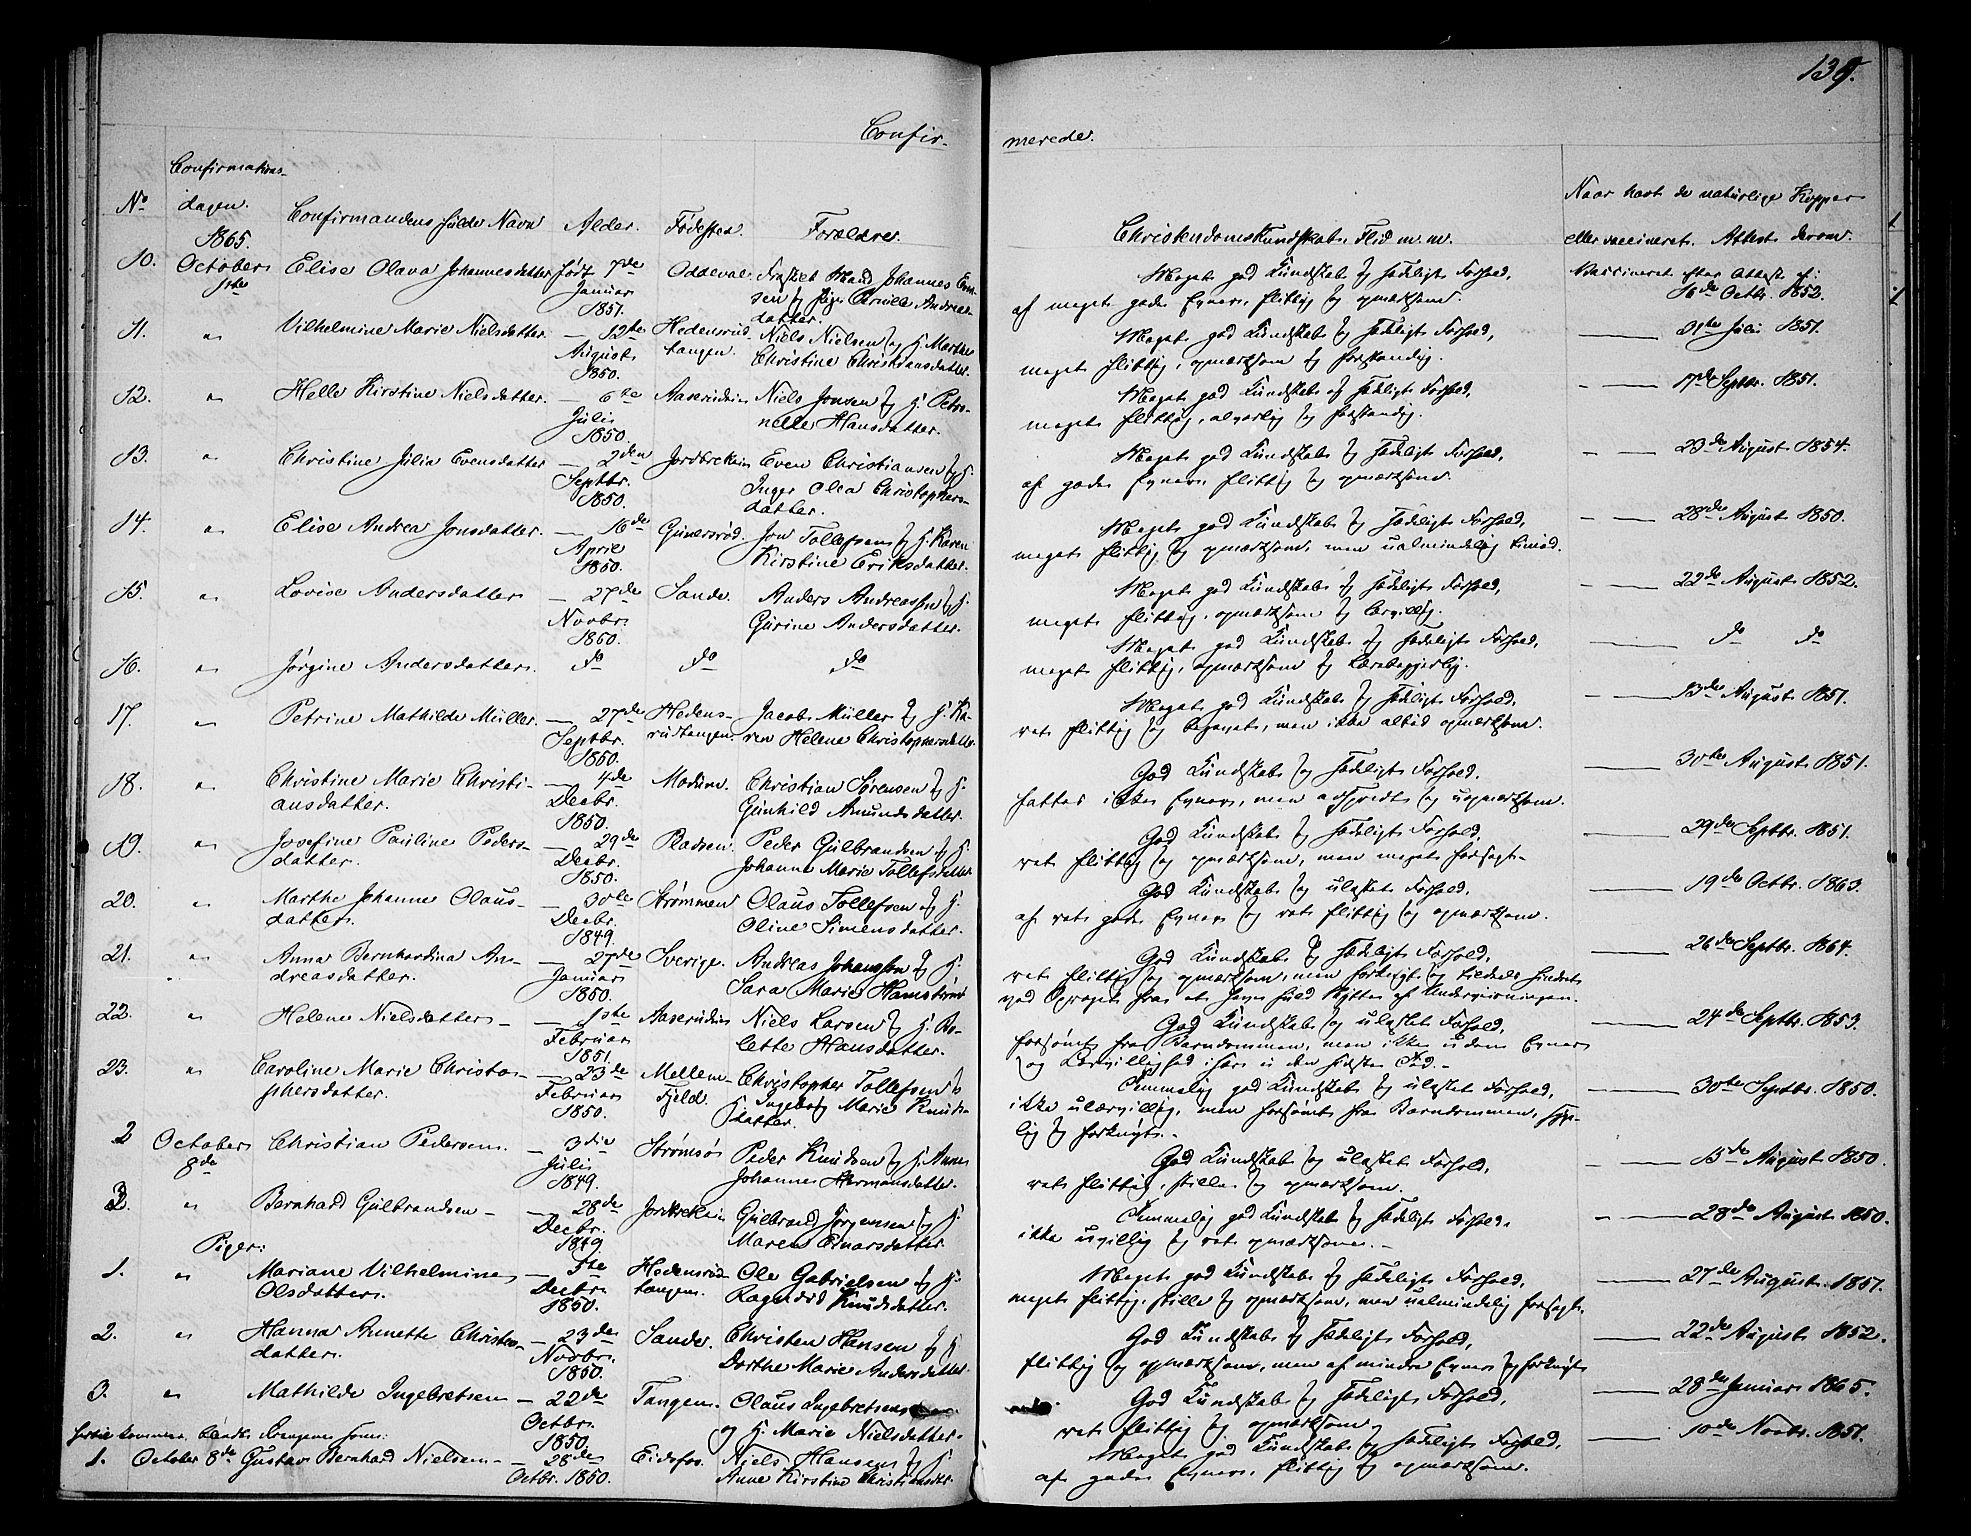 139.
Confirmerede.
No Confirmationsdagen. Confirmandens fulde Navn Alder. Fødested. Forældre. Christendomskundskab, Flid m. m. Naar havt de naturlige Kopper eller vaccineret. Attest derom.
1865.
10. October 1ste Elise Olava Johannesdatter født 7de Januar 1851. Oddeval Johannes datter. Meget god Kundskab og sædeligt Forhold, af meget gode Evner, flittig og opmærksom. Vaccineret efter Attest af: 16de Octbr. 1852.
11. " Vilhelmine Marie Nielsdatter. — 12te August 1850. Hedensrudtangen. Niels Nielsen og H. Marthe Christine Christiansdatter. Meget god Kundskab og sædeligt Forhold, meget flittig, opmærksom og forstandig. — 31te Juli 1851.
12. " Helle Kirstine Nielsdatter. — 6te Juli 1850. Aaserudeie Niels Jonsen og H. Petronelle Hansdatter. Meget god Kundskab og sædeligt Forhold, meget flittig, alvorlig og forstandig. — 17de Septbr. 1851.
13. " Christine Julia Evensdatter — 2den Septbr. 1850. Jordbrekeie Even Christiansen og H. Inger Olea Christophersdatter. Meget god Kundskab og sædeligt Forhold, af gode Evner, flittig og opmærksom. — 23de August 1854.
14. " Elise Andrea Jonsdatter. — 16de April 1850. Gunersrød. Jon Tollefsen og H. Karen Kirstine Eriksdatter. Meget god Kundskab og sædeligt Forhold, meget flittig og opmærksom, men ualmindelig timid. — 28de August 1850.
15. " Lovise Andersdatter — 27de Novbr. 1850. Sande. Anders Andreassen og H. Gurine Andersdatter. Meget god Kundskab og sædeligt Forhold, meget flittig, opmærksom og lærvillig. — 22de August 1852.
16. " Jørgine Andersdatter. do do do Meget god Kundskab og sædeligt Forhold, meget flittig, opmærksom og lærebegjerlig. — do do
17. " Petrine Mathilde Müller. — 27de Septbr. 1850. Hedensrudtangen. Jacob Müller og H. Karen Helene Christophersdatter. Meget god Kundskab og sædeligt Forhold, ret flittig og begavet, men ikke altid opmærksom. — 13de August 1851.
18. " Christine Marie Christiansdatter. — 4de Decbr. 1850. Modum. Christian Sørensen og H. Gunhild Amundsdatter. God Kundskab og sædeligt Forhold. fattes ikke Evner, men adspredt og uopmærksom. — 30te August 1851.
19. " Josefine Pauline Pedersdatter. — 29de Decbr. 1850. Pladsen. Peder Gulbrandsen og H. Johanne Marie Tollefsdatter God Kundskab og sædeligt Forhold, ret flittig og opmærksom, men meget forsagt. — 29de Septbr. 1851.
20. " Marthe Johanne Olausdatter. — 30te Decbr. 1849. Strømmen Olaus Tollefsen og H. Oline Simensdatter. God Kundskab og ulastet Forhold, af ret gode Evner og ret flittig og opmærksom. — 19de Octbr. 1863.
21. " Anna Bernhardina Andreasdatter. — 27de Januar 1850. Sverige. Andreas Johansson og H. Sara Marie God Kundskab og sædeligt Forhold, ret flittig og opmærksom, men forknyt og tildels hindret ved Sproget fra at have fuld Nytte af Undervisningen. — 26de Septbr. 1864.
22. " Helene Nielsdatter — 1ste Februar 1851. Aaserudeie Niels Larsen og H. Bolette Hansdatter. God Kundskab og ulastet Forhold, forsømt fra Barndommen, men ikke uden Evner og Lærvillighed især i den sidste Tid. — 24de Septbr. 1853.
23. " Caroline Marie Christophersdatter. — 23de Februar 1850. Mellem-Fjeld. Christopher Tollefsen og H. Ingeborg Marie Knudsdatter. Temmelig god Kundskab og ulastet Forhold, ikke ulærvillig, men forsømt fra Barndommen, og forknyt. — 30te Septbr. 1850.
2 October 8de Christian Pedersen. — 3die Juli 1849. Strømsø Peder Knudsen og H. Anne Johanne Hermansdatter. God Kundskab og ulastet Forhold, ret flittig, stille og opmærksom. — 15de August 1850.
3. " Bernhard Gulbrandsen — 28de Decbr. 1849. Jordbrekeie Gulbrand Jørgensen og H. Maren Einarsdatter Temmelig god Kundskab og sædeligt Forhold, ikke uvillig og ret opmærksom. — 28de August 1850.
Piger:
1. " Mariane Vilhelmine Olsdatter. — 5te Decbr. 1850. Hedensrudtangen. Ole Gabrielsen og H. Ragnhild Knudsdatter. Meget god Kundskab og sædeligt Forhold, meget flittig, stille og opmærksom, men ualmindelig forsagt. — 27de August 1851.
2. " Hanna Annette Christensdatter. — 23de Novbr. 1850. Sande. Christen Hansen og H. Dorthe Marie Andersdatter. God Kundskab og sædeligt Forhold, flittig og opmærksom, men af mindre Evner og forknyt — 22de August 1852.
3. " Mathilde Ingebretsen — 22de Octbr. 1850. Tangen. Olaus Ingebretsen og H. Marie Nielsdatter. God Kundskab og sædeligt Forhold, ret flittig og opmærksom — 28de Januar 1865.
hertil kommer, blandt Drengene
1. October 8de Gustav Bernhard Nielsen — 28de Octbr. 1850. Eidsfos. Niels Hansen og H. Anne Kirstine Christiansdtr. Meget god Kundskab og sædeligt Forhold, af gode Evner, flittig og opmærksom. — 10de Novbr. 1851.